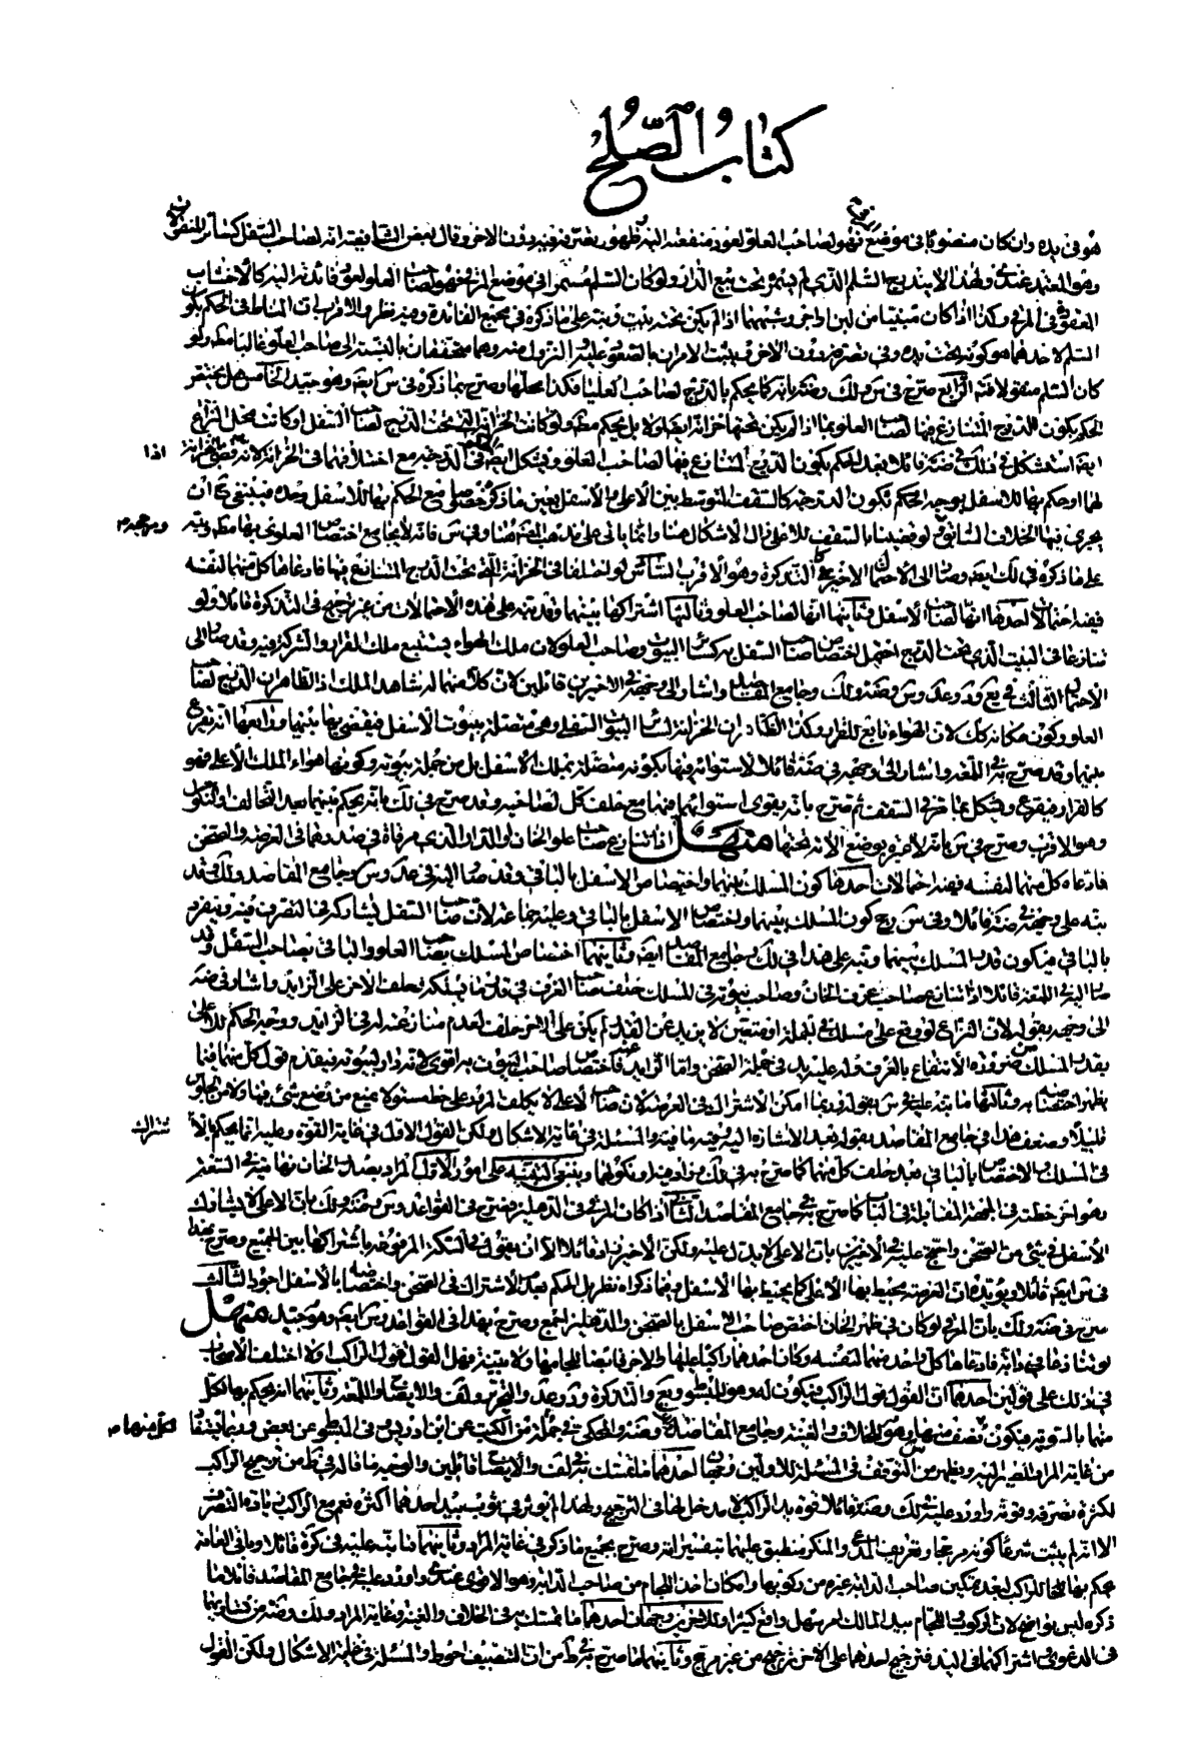 كتاب الصلح
هو في يده وان كان منصوبا في موضع فهو لصاحب العلو لعود منفعته اليه وظهور تصرفه فيه دون الاخر وقال بعض الشافعية انه لصاحب السفل كسائر
وهو المعتمد عندي ولهذا لا يندرج السلم الذي لم يسمر تحت بيع الدار ولو كان السلم مسمرا في موضع المرقى فهو لصاحب العلو لعود فائدته اليه كالاخشاب
المعقودة في المرقى وكذا اذا كان مبنيا من لبن او اجر وشبههما اذا لم يكن تحته بيت ونبه على ما ذكره في مجمع الفائدة وفيه نظر والاقرب ان المناط في الحكم بكون
السلم لاحدهما هو كونه تحت يده وفي تصرفه دون الاخر فيثبت الامران بالصعود عليه والنزول منه وهما متحققان بالنسبة الى صاحب العلو غالبا مطلقا ولو
كان السلم منقولا لافة الرابع صرح في س ولك وضة بانه كما يحكم بالدرج لصاحب العليا فكذا محلها وصرح بما ذكره في س ايضا وهو جيد الخامس هل يختص
الحكم بكون الدرج المتنازع فيها لصاحب العلو بما اذا لم يكن تحتها خزانة ايضا ولا بل يحكم مطلقا ولو كانت الخزانة التي تحت الدرج لصاحب السفل او كانت محل النزاع
ايضا استشكل في ذلك في ضة قائلا بعد الحكم بكون الدرج المتنازع فيها لصاحب العلو ويشكل ايضا الحكم في الدرجة مع اختلافهما في الخزانة لانه اذا
لهما او حكم بها للاسفل بوجه الحكم تكون الدرجة كالسقف المتوسط بين الاعلى والاسفل بعين ما ذكر خصوصا مع الحكم بها للاسفل وحده فينبغي ح ان
يجري فيها الخلاف السابق لو قضينا بالسقف للاعلى زال الاشكال هنا وانما ياتي على مذهب المصنف هنا وفي س فانه لا يجامع اختصاص العلوي بها مطلقا ونبه
على ما ذكره في لك ايضا وصار الى الاحتمال الاخير في التذكرة وهو الاقرب السادس لو اختلفا في الخزانة التي تحت الدرج المتنازع فيها فادعاها كل منهما لنفسه
ففيه احتمالان احدهما انها لصاحب الاسفل وثانيهما انها لصاحب العلو وثالثها اشتراكها بينهما وقد نبه على هذه الاحتمالات من غير ترجيح في التذكرة قائلا ولو
تنازعا في البيت الذي تحت الدرج احتمل اختصاص صاحب السفل به كسائر البيوت وصاحب العلو لان ملك الهواء يستتبع ملك القرار والشركة فيه وقد صار الى
الاحتمال الثالث في يع ود وعد وس وضة ولك وجامع المقاصد واشار الى وجهه في الاخيرين قائلين كان كلا منهما له شاهد الملك اذ الظاهر ان الدرج لصاحب
العلو وكون مكانه كك لان الهواء تابع للقرار وكذا الظاهر ان الخزانة كسائر البيوت السفلى وهي متصلة ببيوت الاسفل فيقضى بها بينهما ورابعها انه يقرع
بينهما وقد صرح به في اللمعة واشار الى وجهه في ضة قائلا لاستوائهما فيها بكونه متصلة بملك الاسفل بل من جملة بيوته وكونها هواء الملك الاعلى فهو
كالقرار فيقرع ويشكل بما مر في السقف ثم صرح بانه يقوى استوائهما فيها مع حلف كل لصاحبه وقد صرح في لك بانه يحكم بينهما بعد التحالف او النكول
وهو الاقرب وصرح في س بانه لا عبرة بوضع الانية تحتها منهل اذا تنازع صاحب علو الخان او الدار الذي مرقاة في صدرهما في العرصة والصحن
فادعاه كل منهما لنفسه ففيه احتمالان احدهما كون المسلك بينهما واختصاص الاسفل بالباقي وقد صار اليه في عد وس وجامع المقاصد ولك وقد
نبه على وجهه في ضة قائلا وفي س رجح كون المسلك بينهما واختصاص الاسفل بالباقي وعليه جماعة لان صاحب السفل يشاركه في التصرف فيه وينفرد
بالباقي فيكون قدر المسلك بينهما ونبه على هذا في لك وجامع المقاصد ايضا وثانيهما اختصاص المسلك بصاحب العلو والباقي بصاحب السفل وقد
صار اليه في اللمعة قائلا اذا تنازع صاحب غرف الخان وصاحب بيوته في المسلك حلف صاحب الغرف في قدر ما يسلكه وحلف الاخر على الزايد واشار في ضة
الى وجهه بقوله لان النزاع لو وقع على مسلك في الجملة او معين لا يزيد عن القدر لم يكن على الاخر حلف لعدم منازعته له في الزايد ووجه الحكم
بقدر المسلك من ضرورة الانتفاع بالغرف وله عليه يد في جملة الصحن واما الزايد عنه فاختصاص صاحب البيوت به اقوى لانه دار لبيوته فيقدم قول كل منهما فيما
يظهر اختصاصه به وثالثها ما نبه عليه في س بقوله وربما امكن الاشتراك في العرصة لان صاحب الاعلى لا يكلف المرور على خط مستو ولا يمنع من وضع شيء فيها ولا من الجلوس
قليلا وضعف هذا في جامع المقاصد بقوله بعد الاشارة اليه وفيه ما فيه والمسئلة في غاية الاشكال ولكن القول الاول في غاية القوة وعليه انما يحكم بالاشتراك
في المسلك والاختصاص بالباقي بعد حلف كل منهما كما صرح به في لك وينبغي التنبيه على امور الاول المراد بصدر الخان نهايته في السفر
وهو اخر خطته في الجهة المقابلة للباب كما صرح به في جامع المقاصد الثاني اذا كان المرقى في الدهليز فصرح في القواعد وس وضة ولك بان الاعلى لا يشارك
الاسفل في شيء من الصحن واحتج عليه في الاخيرين بان الاعلى لا يد له عليه ولكن في الاخير زاد قائلا الا ان يقول في السكة المرفوعة باشتراكها بين الجميع وصرح
في س ايضا قائلا ويؤيده ان العرصة يحيط بها الاعلى كما يحيط بها الاسفل وفيما ذكراه نظر بل الحكم بعد الاشتراك في الصحن واختصاصه بالاسفل اجود الثالث
صرح في ضة ولك بان المرقى لو كان في ظهر الخان اختص صاحب الاسفل بالصحن والدهليز اجمع وصرح بهذا في القواعد وس ايضا وهو جيد منهل
لو تنازعا في دابة فادعاها كل واحد منهما لنفسه وكان احدهما راكبا عليها والاخر قابضا للجامها ولا بينة فهل القول قول الراكب او لا اختلف الاصحاب
في ذلك على قولين احدهما ان القول قول الراكب فيكون له وهو للمبسوط ويع والتذكرة ود وعد والتحرير ولف والايضاح واللمعة وثانيهما انه يحكم بها لكل
منهما بالسوية فيكون نصف منها وهو للخلاف والغنية وجامع المقاصد وضة والمحكي في جملة من الكتب عن ابن ادريس وفي المبسوط عن بعض لكل منهما
من غاية المرام المصير اليه ويظهر من س التوقف في المسئلة للاولين وجهان احدهما ما تمسك به في لف والايضاح قائلين والوجه ما قاله في ط من ترجيح الراكب
لكثرة تصرفه وقوته واورد عليه في لك وضة قائلا قوة يد الراكب لا مدخل لها في الترجيح ولهذا لم يؤثر في ثوب بيد احدهما اكثره نعم مع الراكب زيادة التصرف
الا انه لم يثبت شرعا كونه مرجحا وتعريف المدعي والمنكر منطبق عليهما بتفسيراته وصرح بجميع ما ذكره في غاية المرام وثانيهما ما نبه عليه في كرة قائلا وما في العادة
يحكم بها للراكب لبعد تمكين صاحب الدابة غيره من ركوبها وامكان اخذ اللجام من صاحب الدابة وهو الاقوى عندي واورد عليه في جامع المقاصد قائلا ما
ذكره ليس بواضح لان الركوب واللجام بيد المالك امر سهل واقع كثيرا وللاخرين وجهان احدهما ما تمسك به في الخلاف والغنية وغاية المرام ولك وضة من تساويهما
في الدعوى واشتراكهما في اليد فترجيح احدهما على الاخر ترجيح من غير مرجح وثانيهما ما صرح به في ط من ان التنصيف احوط والمسئلة في غاية الاشكال ولكن القول